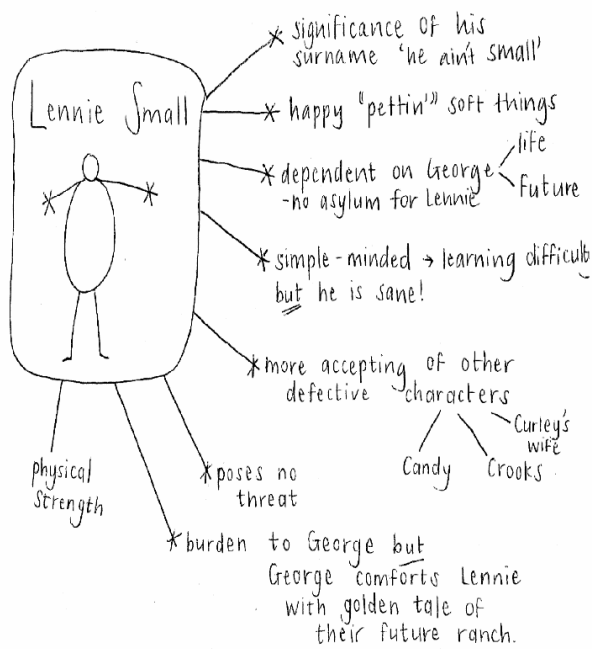 Lennie Small
* significance of his
surname 'he ain't small'
* happy "pettin'" soft things
* dependent on George
life
future
-no asylum for Lennie
* simple-minded → learning difficult
but he is sane!
* more accepting of other
defective characters
Candy
Crooks
Curley's
wife
physical
strength
* poses no
threat
* burden to George but
George comforts Lennie
with golden tale of
their future ranch.